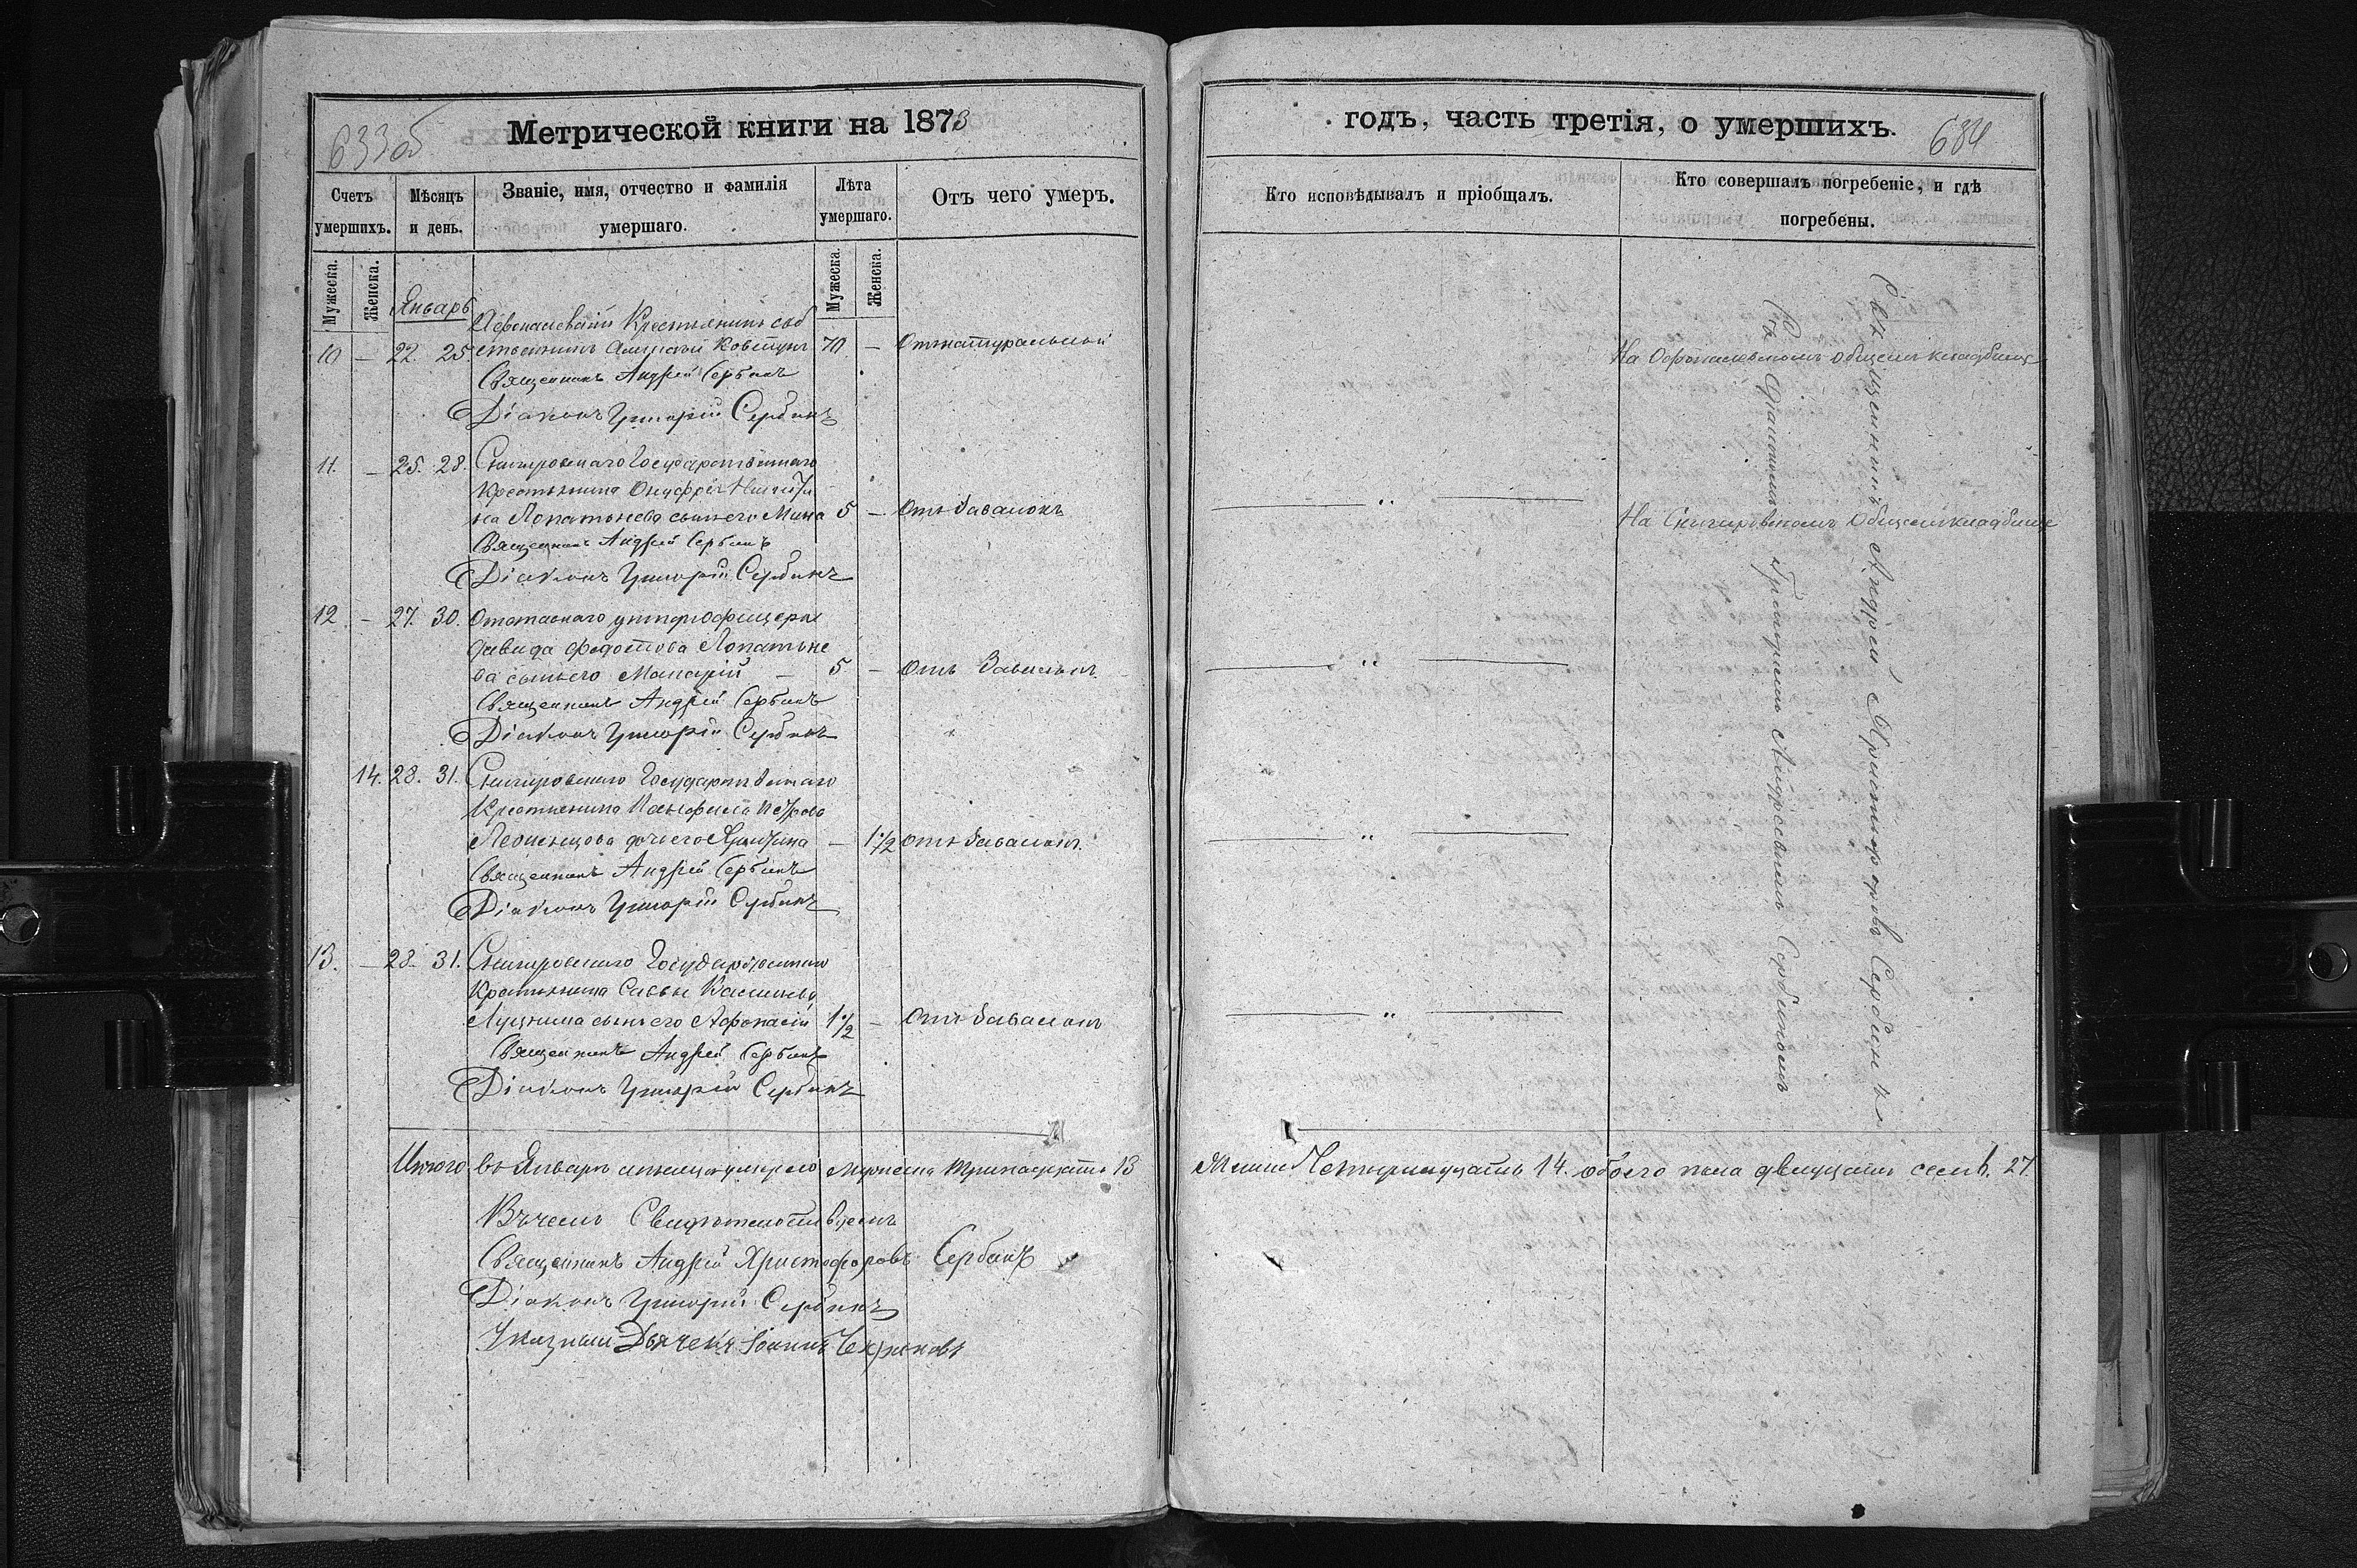 633об
Метрической книги на 1873
Счетъ умершихъ.
Мѣсяцъ и день.
Званіе, имя, отчество и фамилія умершаго.
Лѣта умершаго.
Отъ чего умеръ.
Мужеска.
Женска.
Мужеска.
Женска.
Январь
Крестьянинъ соб
10 — 22. 25 ственникъ Ковтунъ 70. — Отъ натуральной
Священникъ Андрей Сербинъ
Діаконъ Григорій Сербинъ
11. — 25. 28. Снигировскаго Государственнаго
Крестьянина Онуфрія Ники
на Лопатнева сынъ его Мина 5 — Отъ Завалокъ
Священникъ Андрей Сербинъ
Діаконъ Григорій Сербинъ
12. — 27. 30. Отставнаго унтерофицера
Давида Федотова Лопатне
ва сынъ его Макарій — 5 — Отъ Завалокъ
Священникъ Андрей Сербинъ
Діаконъ Григорій Сербинъ
14. 28. 31. Снигировскаго Государственнаго
Крестьянина Панфила Петрова
дочь его — 1 1/2 Отъ Завалокъ.
Священникъ Андрей Сербинъ
Діаконъ Григорій Сербинъ
13. — 28. 31. Снигировскаго Государственнаго
Крестьянина Савы
сынъ его Афонасій 1 1/2 — Отъ Завалокъ
Священникъ Андрей Сербинъ
Діаконъ Григорій Сербинъ
Итого въ Январѣ мѣсяцѣ умерло Мужеска тринадцать 13
Въ чемъ Свидѣтельствуемъ
Священникъ Андрей Христофоровъ Сербинъ
Діаконъ Григорій Сербинъ
Указный Дьячекъ Іоаннъ
годъ, часть третія, о умершихъ.
634
Кто исповѣдывалъ и пріобщалъ.
Кто совершалъ погребеніе, и гдѣ погребены.
На общемъ кладбищѣ
— „ — На Снигировскомъ Общемъ кладбищѣ
— „ —
— „ —
— „ —
Священникъ Андрей Христофоровъ Сербинъ
Съ Діакономъ Григоріемъ Андреевымъ Сербиномъ
Женска Четырнадцать 14. обоего пола двадцать семь. 27.